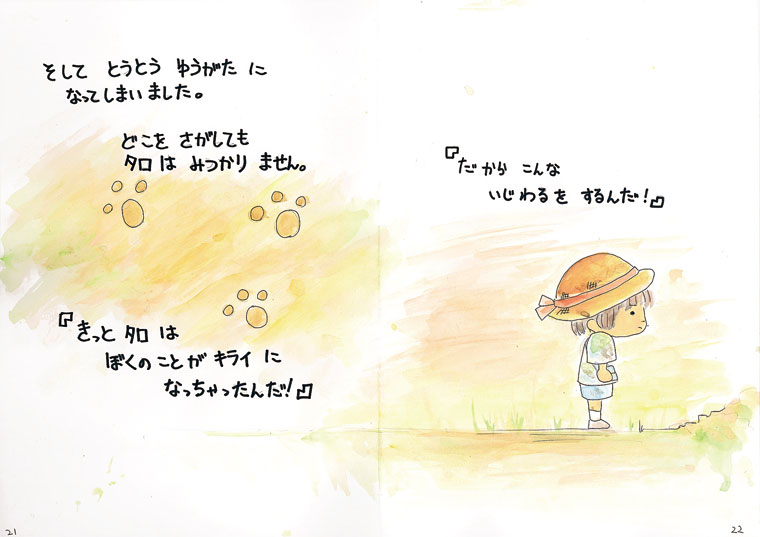 そして とうとう ゆうがた に
なってしまいました。
どこを さがしても
タロは みつかり ません。
『きっと タロ は
ぼくの こと が キライ に
なっちゃったんだ!』
『だから こんな
いじわるを するんだ!』
21
22